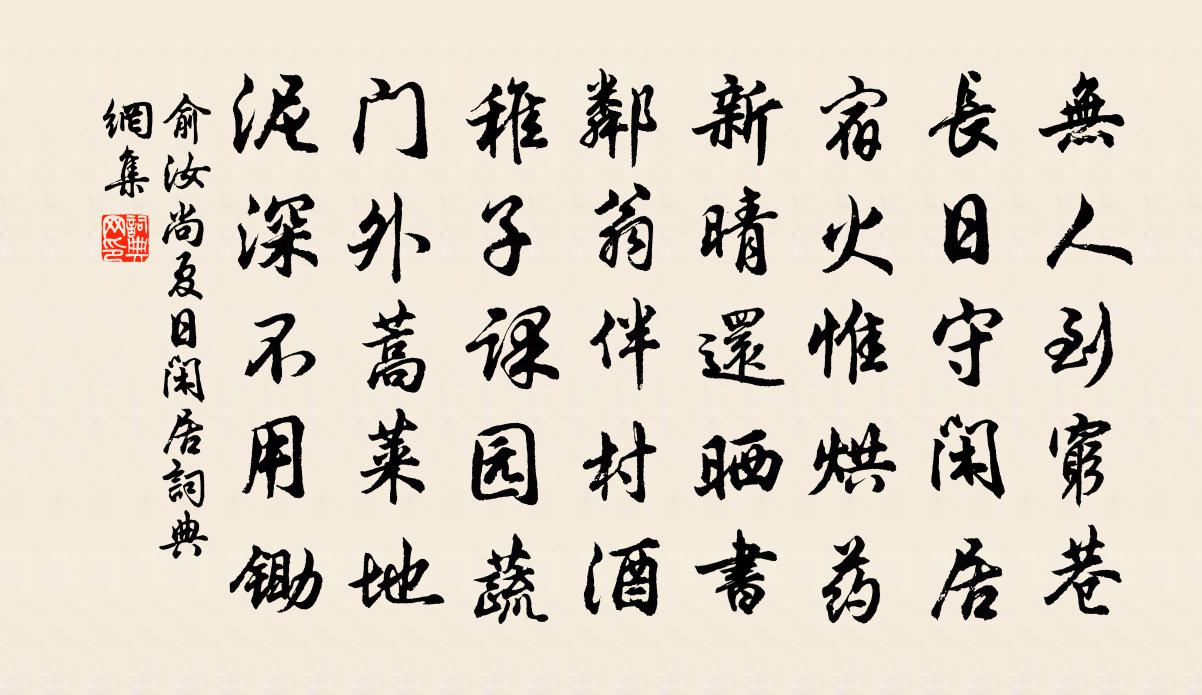 無人到窮巷
長日守閑居
宿火惟烘药
新晴還晒書
鄰翁伴村酒
稚子课园蔬
门外蒿莱地
泥深不用锄
俞汝尚夏日閑居詞典
網集
詞典
网印